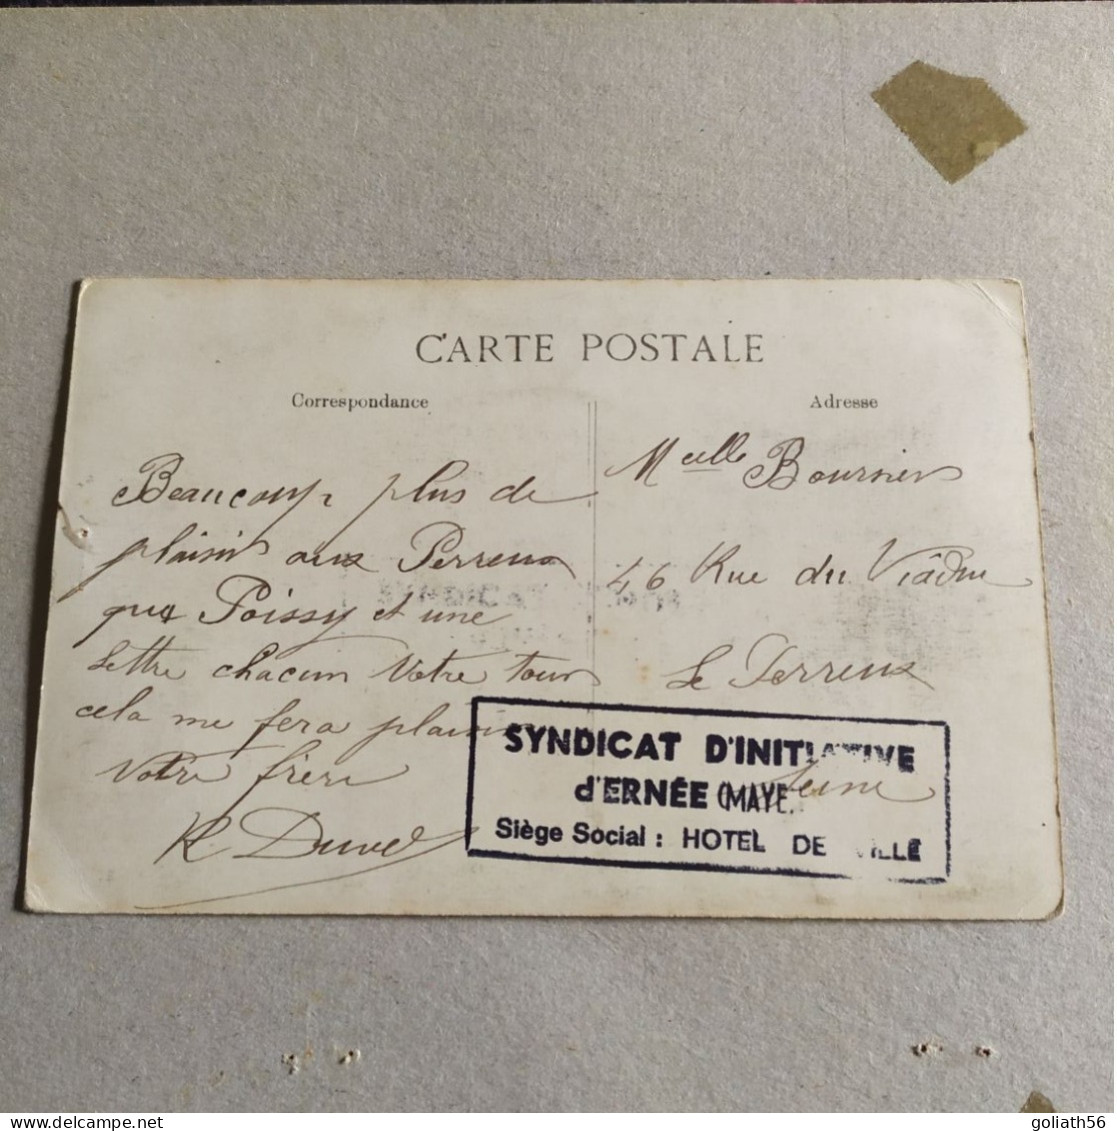 CARTE POSTALE
Correspondance
Beaucoup plus de
plaisir aux Perreux
qua Poissy et une
lettre chacun Votre tour
cela me fera plaisir
Votre frère
R Duval
Adresse
Mcelle Boursier
46 Rue du Viaduc
Le Perreux
Seine
SYNDICAT D'INITIATIVE
d'ERNÉE (MAYE.
Siège Social : HOTEL DE VILLE
goliath56